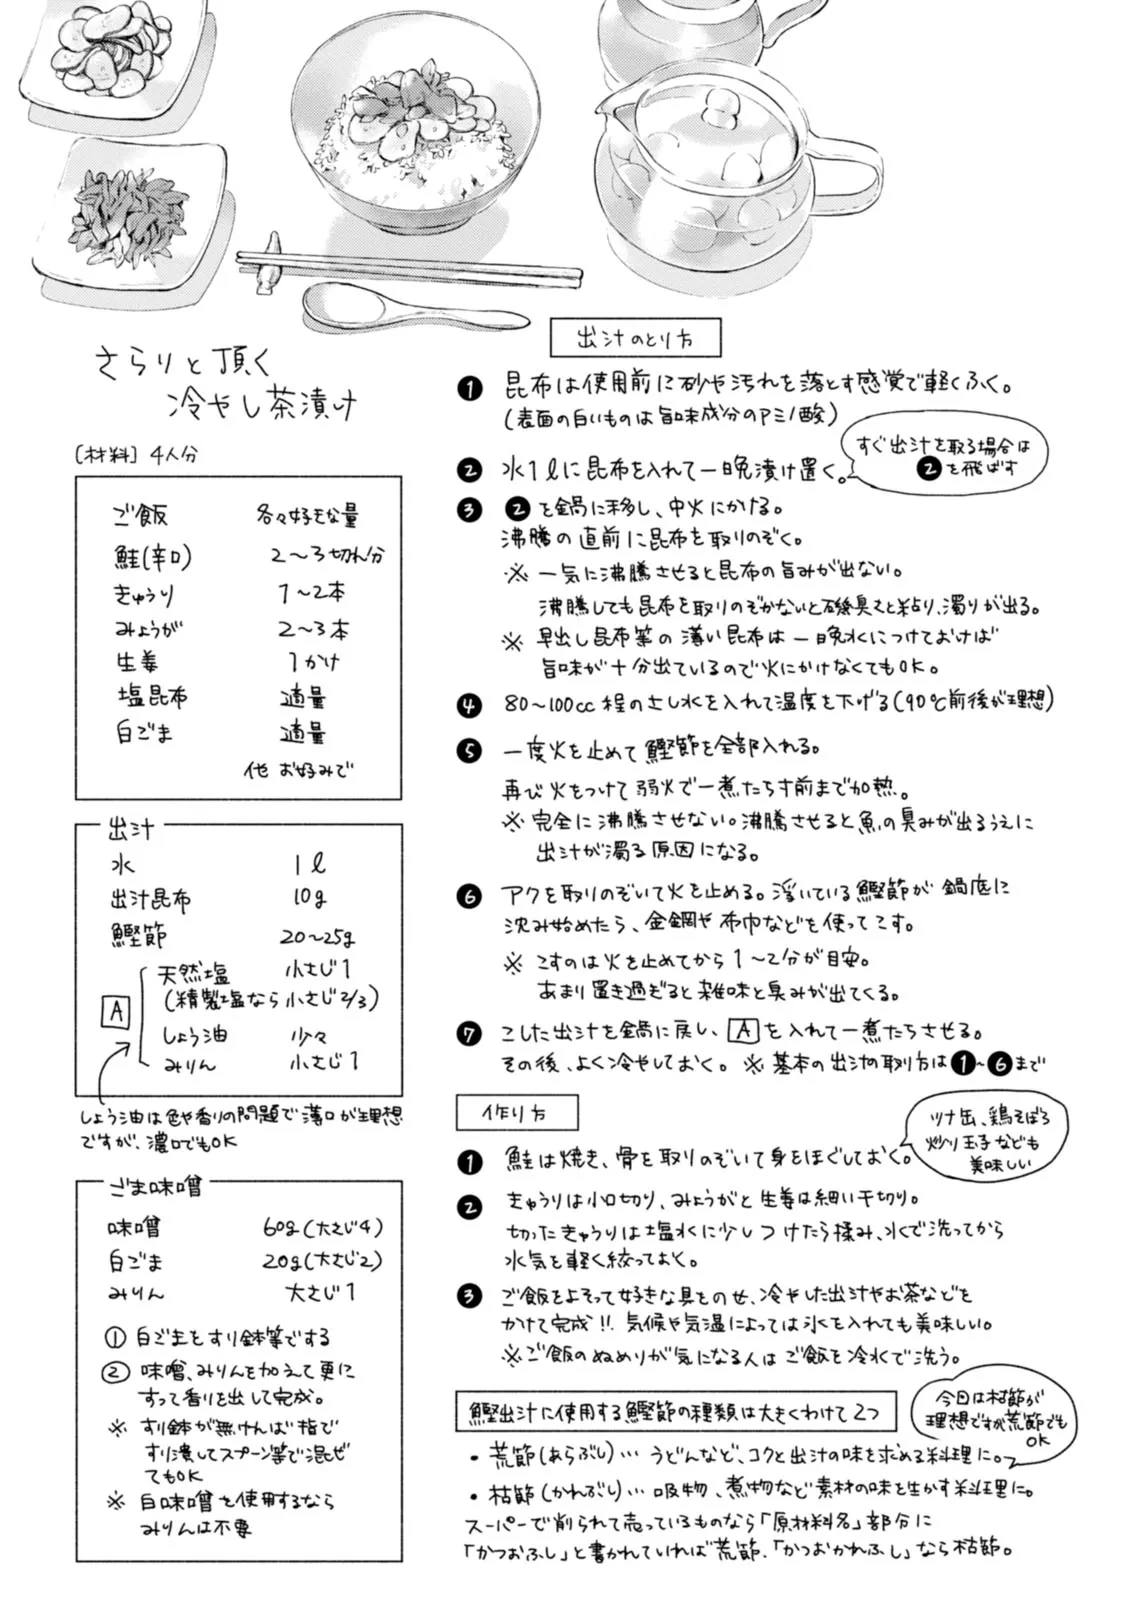 さらりと頂く
冷やし茶漬け
[材料] 4人分
ご飯 各々好きな量
鮭(辛口) 2〜3切れ分
きゅうり 1〜2本
みょうが 2〜3本
生姜 1かけ
塩昆布 適量
白ごま 適量
他 お好みで
出汁
水 1ℓ
出汁昆布 10g
鰹節 20〜25g
A
天然塩 小さじ1
(精製塩なら小さじ2/3)
しょう油 少々
みりん 小さじ1
しょう油は色や香りの問題で薄口が理想
ですが、濃口でもOK
ごま味噌
味噌 60g(大さじ4)
白ごま 20g(大さじ2)
みりん 大さじ1
① 白ごまをすり鉢等でする
② 味噌、みりんを加えて更に
すって香りを出して完成。
※ すり鉢が無ければ指で
すり潰してスプーン等で混ぜ
てもOK
※ 白味噌を使用するなら
みりんは不要
出汁のとり方
❶ 昆布は使用前に砂や汚れを落とす感覚で軽くふく。
(表面の白いものは旨味成分のアミノ酸)
❷ 水1ℓに昆布を入れて一晩漬け置く。
すぐ出汁を取る場合は
❷を飛ばす
❸ ❷を鍋に移し、中火にかける。
沸騰の直前に昆布を取りのぞく。
※ 一気に沸騰させると昆布の旨みが出ない。
沸騰しても昆布を取りのぞかないと磯臭さと粘り、濁りが出る。
※ 早出し昆布等の薄い昆布は一晩水につけておけば
旨味が十分出ているので火にかけなくてもOK。
❹ 80〜100cc程のさし水を入れて温度を下げる(90℃前後が理想)
❺ 一度火を止めて鰹節を全部入れる。
再び火をつけて弱火で一煮たち寸前まで加熱。
※ 完全に沸騰させない。沸騰させると魚の臭みが出るうえに
出汁が濁る原因になる。
❻ アクを取りのぞいて火を止める。浮いている鰹節が鍋底に
沈み始めたら、金網や布巾などを使ってこす。
※ こすのは火を止めてから1〜2分が目安。
あまり置き過ぎると雑味と臭みが出てくる。
❼ こした出汁を鍋に戻し、Aを入れて一煮たちさせる。
その後、よく冷やしておく。 ※ 基本の出汁の取り方は❶〜❻まで
作り方
❶ 鮭は焼き、骨を取りのぞいて身をほぐしておく。
ツナ缶、鶏そぼろ
炒り玉子なども
美味しい
❷ きゅうりは小口切り、みょうがと生姜は細い千切り。
切ったきゅうりは塩水に少しつけたら揉み、水で洗ってから
水気を軽く絞っておく。
❸ ご飯をよそって好きな具をのせ、冷やした出汁やお茶などを
かけて完成!! 気候や気温によっては氷を入れても美味しい。
※ご飯のぬめりが気になる人はご飯を冷水で洗う。
鰹出汁に使用する鰹節の種類は大きくわけて2つ
今日は枯節が
理想ですが荒節でも
OK
・荒節(あらぶし)… うどんなど、コクと出汁の味を求める料理に。
・枯節(かれぶし)… 吸物、煮物など素材の味を生かす料理に。
スーパーで削られて売っているものなら「原材料名」部分に
「かつおふし」と書かれていれば荒節、「かつおかれふし」なら枯節。